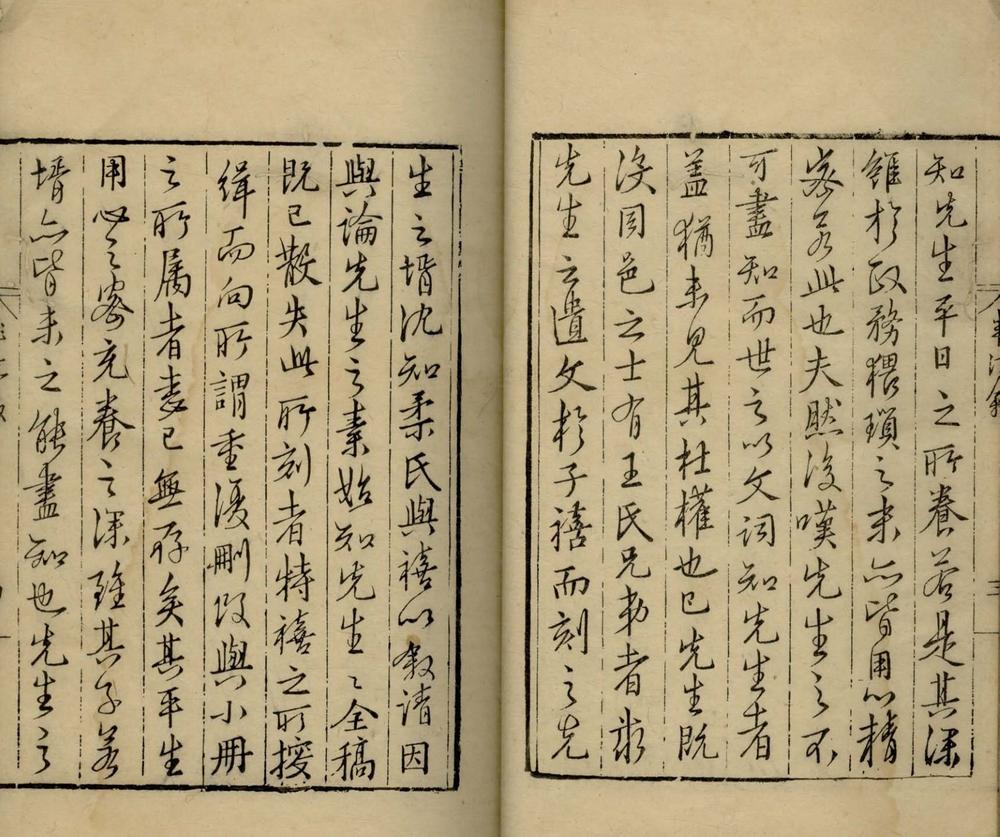 知先生平日之所養若是其深
雖於政務猥瑣之末亦皆用心精
密若此也夫然後嘆先生之不
可盡知而世之以文詞知先生者
蓋猶未見其杜權也已先生既
沒同邑之士有王氏兄弟者裒
先生之遺文於子禧而刻之先
生之壻沈知柔氏與禧以敘請因
與論先生之素始知先生之全稿
既已散失此所刻者特禧之所掇
緝而向所謂重復刪改與小冊
之所屬者悉已無存矣其平生
用心之密充養之深雖其子若
壻亦皆未之能盡知也先生之